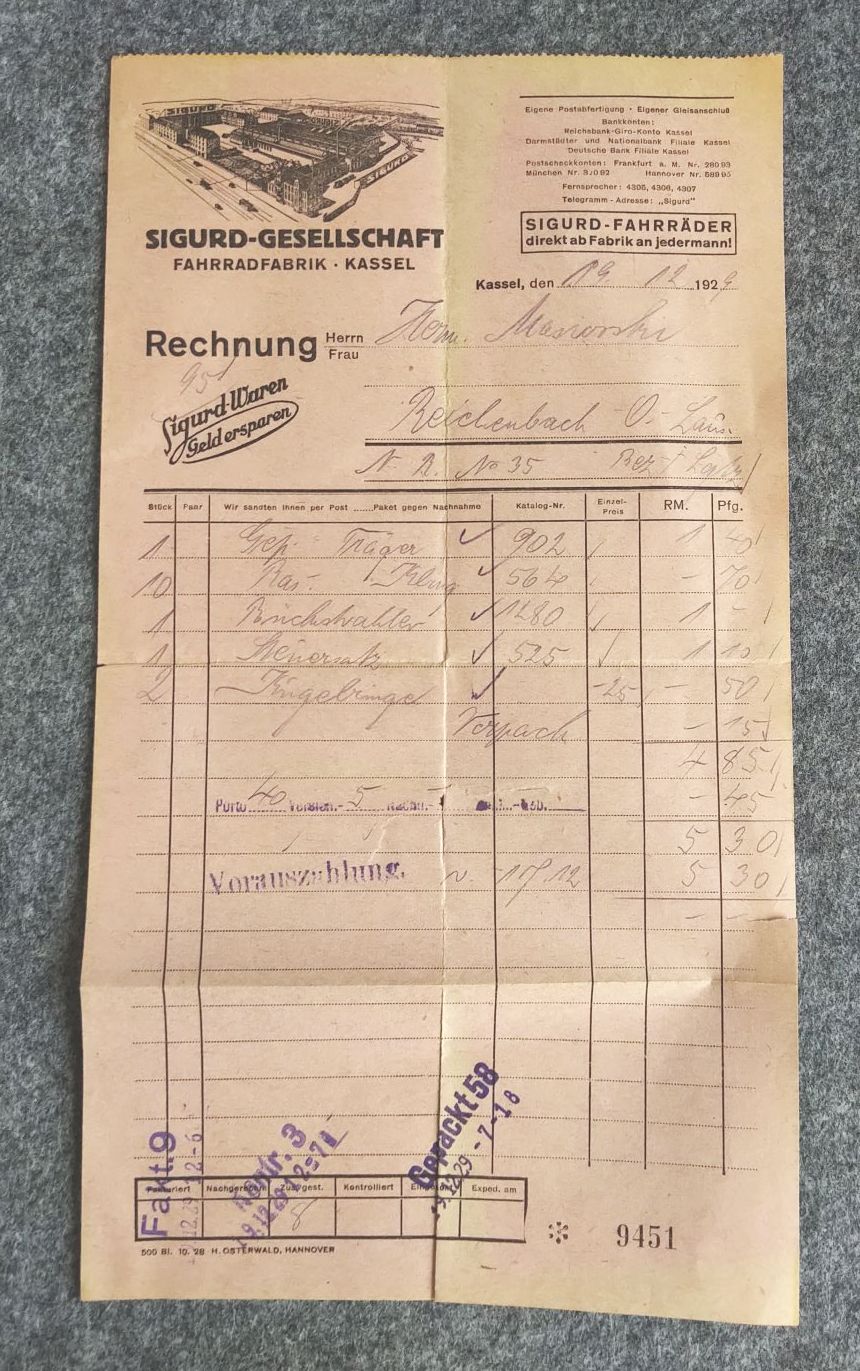 SIGURD
SIGURD
SIGURD-GESELLSCHAFT
FAHRRADFABRIK · KASSEL
Eigene Postabfertigung · Eigener Gleisanschluß
Bankkonten:
Reichsbank-Giro-Konto Kassel
Darmstädter und Nationalbank Filiale Kassel
Deutsche Bank Filiale Kassel
Postscheckkonten: Frankfurt a. M. Nr. 28093
München Nr. Hannover Nr. 58995
Fernsprecher: 4305, 4306, 4307
Telegramm-Adresse: „Sigurd"
SIGURD-FAHRRÄDER
direkt ab Fabrik an jedermann!
Kassel, den 19 12 1929
Rechnung Herrn
Frau
Reichenbach O.-Laus.
951
Sigurd-Waren
Geld ersparen
N. No 35
Stück Paar Wir sandten Ihnen per Post ......Paket gegen Nachnahme Katalog-Nr. Einzel-Preis RM. Pfg.
1 Gep. Träger 902 1 40
10 564 - 70
1 Rückstrahler 1280 1 -
1 Steuersatz 525 1 10
2 Kugelringe -25 - 50
Verpack - 15
4 85
Porto 40 Versich.- 5 - 45
5 30
Vorauszahlung. v. 17/12 5 30
- -
Fakt. 9
19.12.29
Kontr. 3
19.12.29
Gepackt 58
19.12.29 -7-18
Fakturiert Nachgerechn. Zus.gest. Kontrolliert Exped. am
8
500 Bl. 10. 28 H. OSTERWALD, HANNOVER
9451